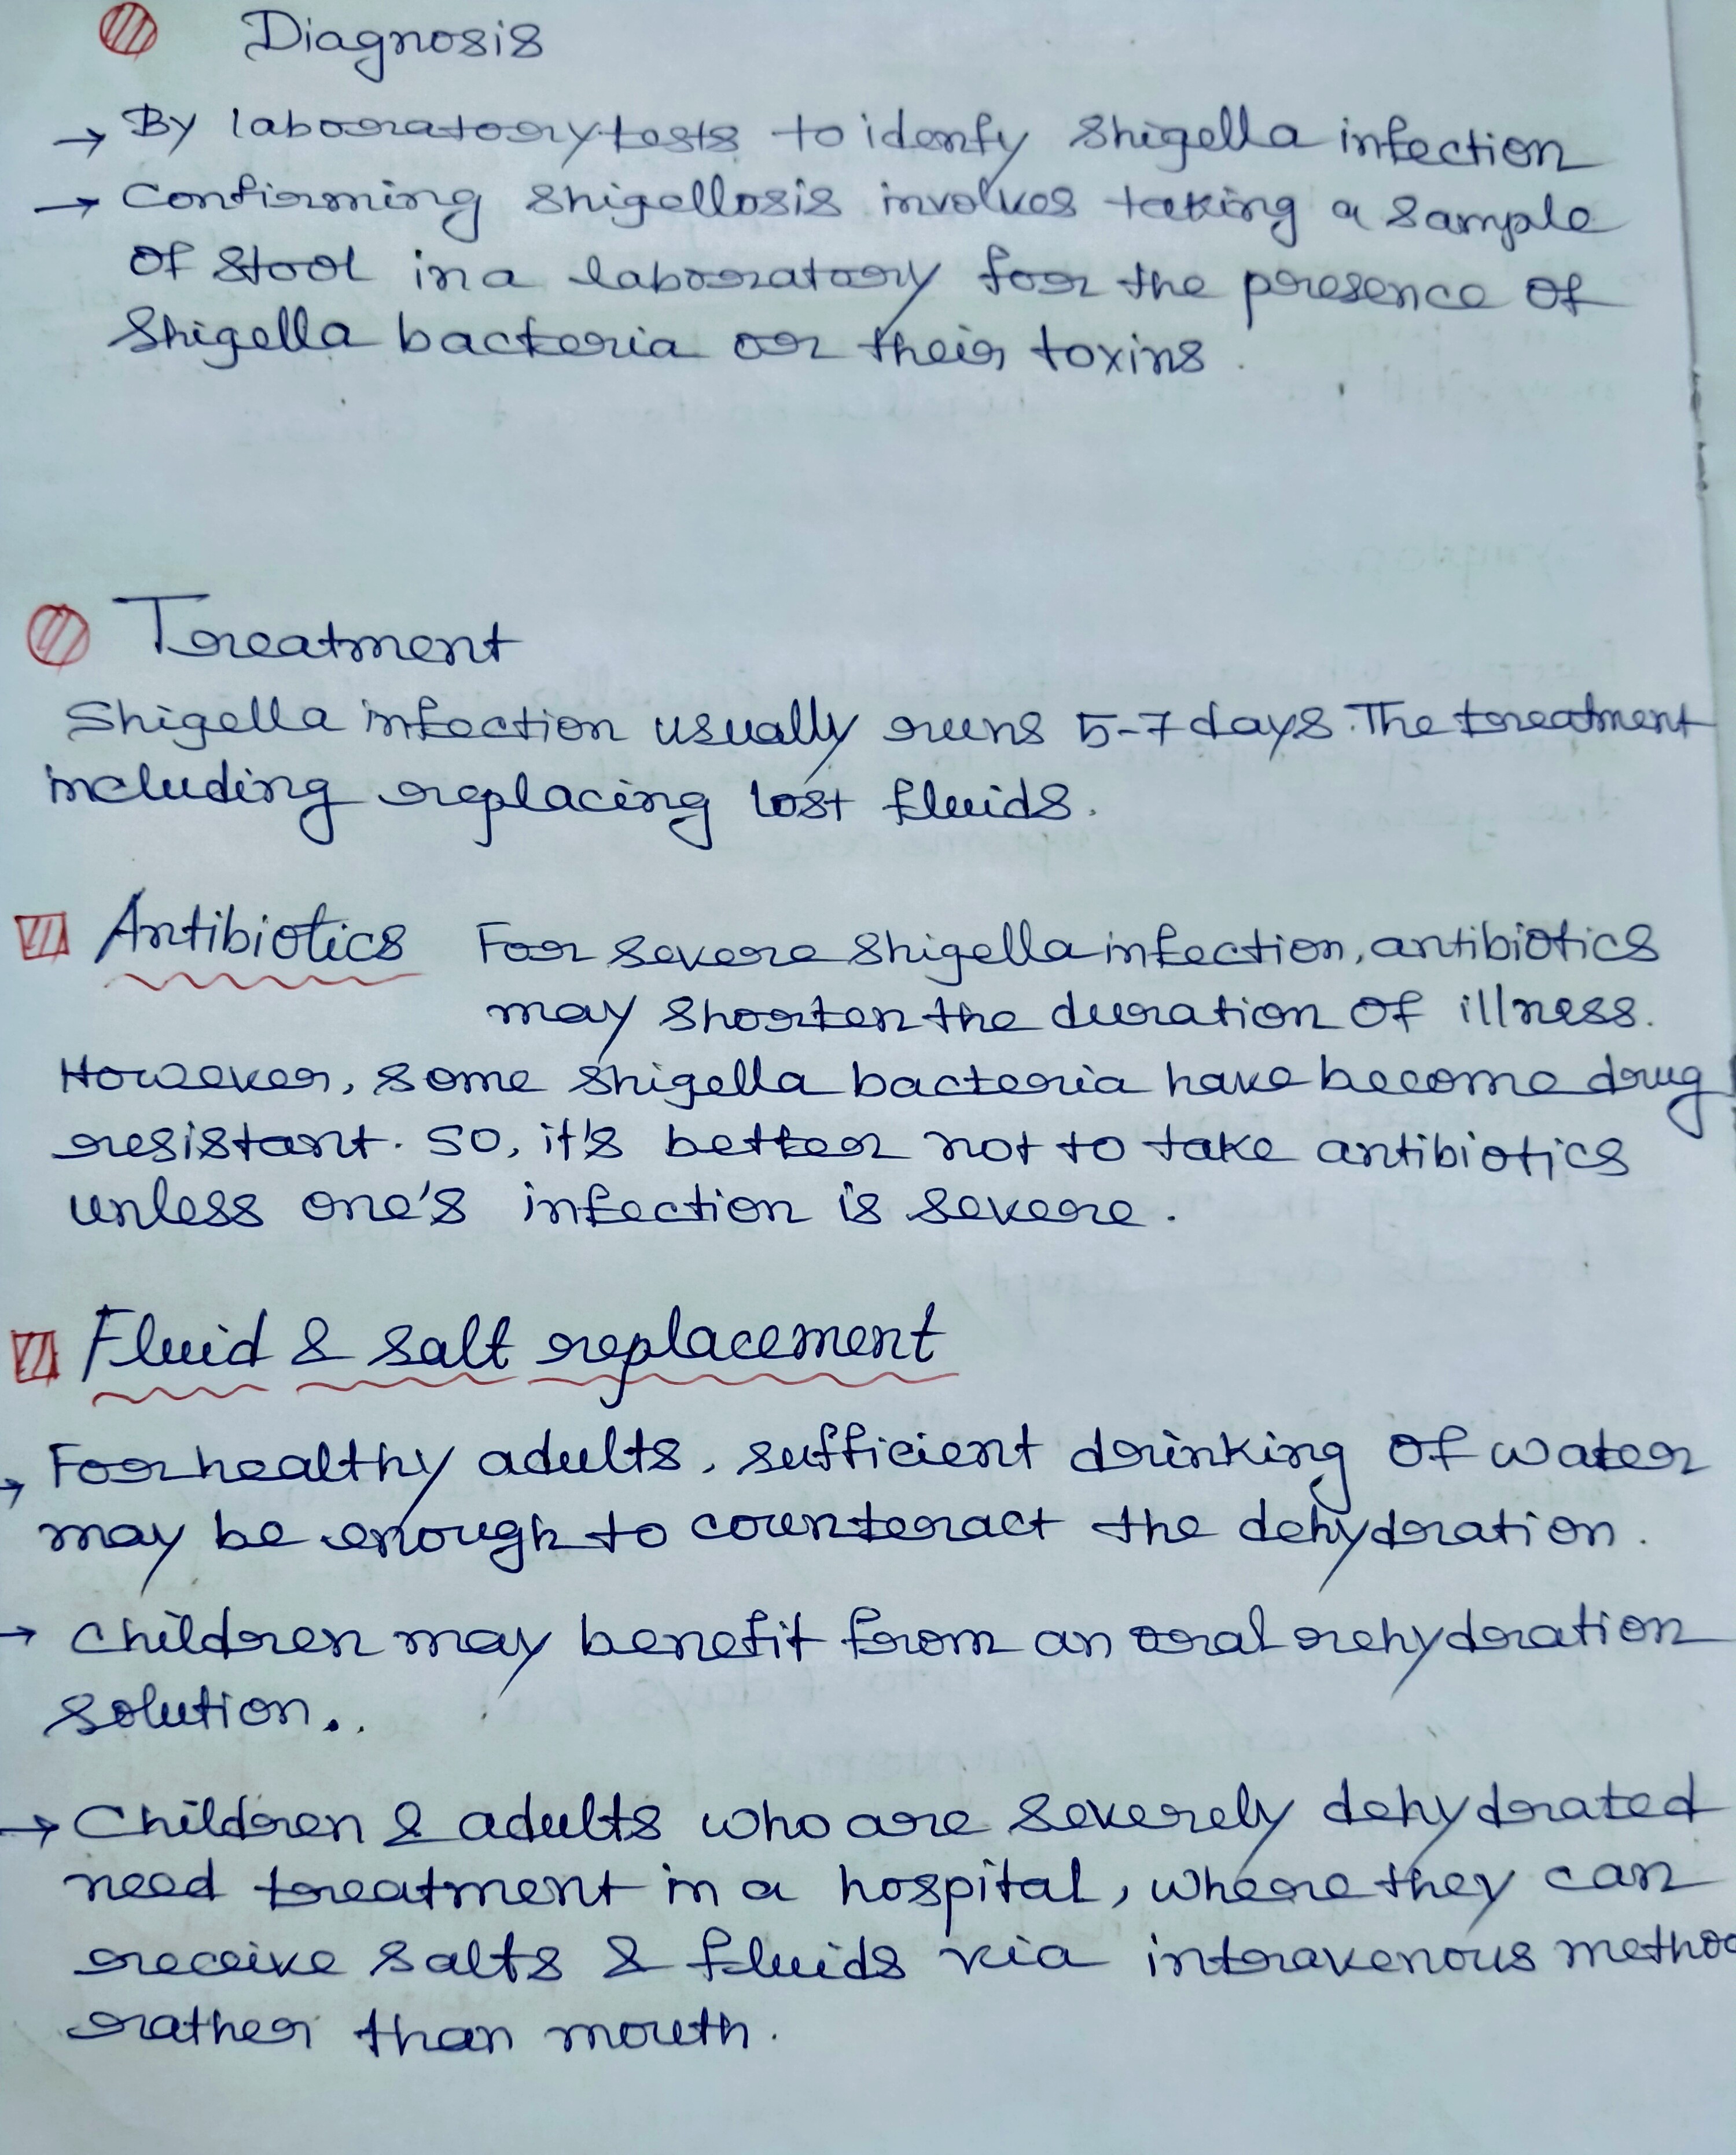 Diagnosis
→ By laboratory tests to idenfy Shigella infection
→ Confirming Shigellosis involves taking a sample
of stool in a laboratory for the presence of
Shigella bacteria or their toxins.
Treatment
Shigella infection usually runs 5-7 days. The treatment
including replacing lost fluids.
Antibiotics For severe Shigella infection, antibiotics
may shorten the duration of illness.
However, some Shigella bacteria have become drug
resistant. So, it's better not to take antibiotics
unless one's infection is severe.
Fluid & salt replacement
→ For healthy adults, sufficient drinking of water
may be enough to counteract the dehydration.
→ Children may benefit from an oral rehydration
solution..
→ Children & adults who are severely dehydrated
need treatment in a hospital, where they can
receive salts & fluids via intravenous metho
rather than mouth.